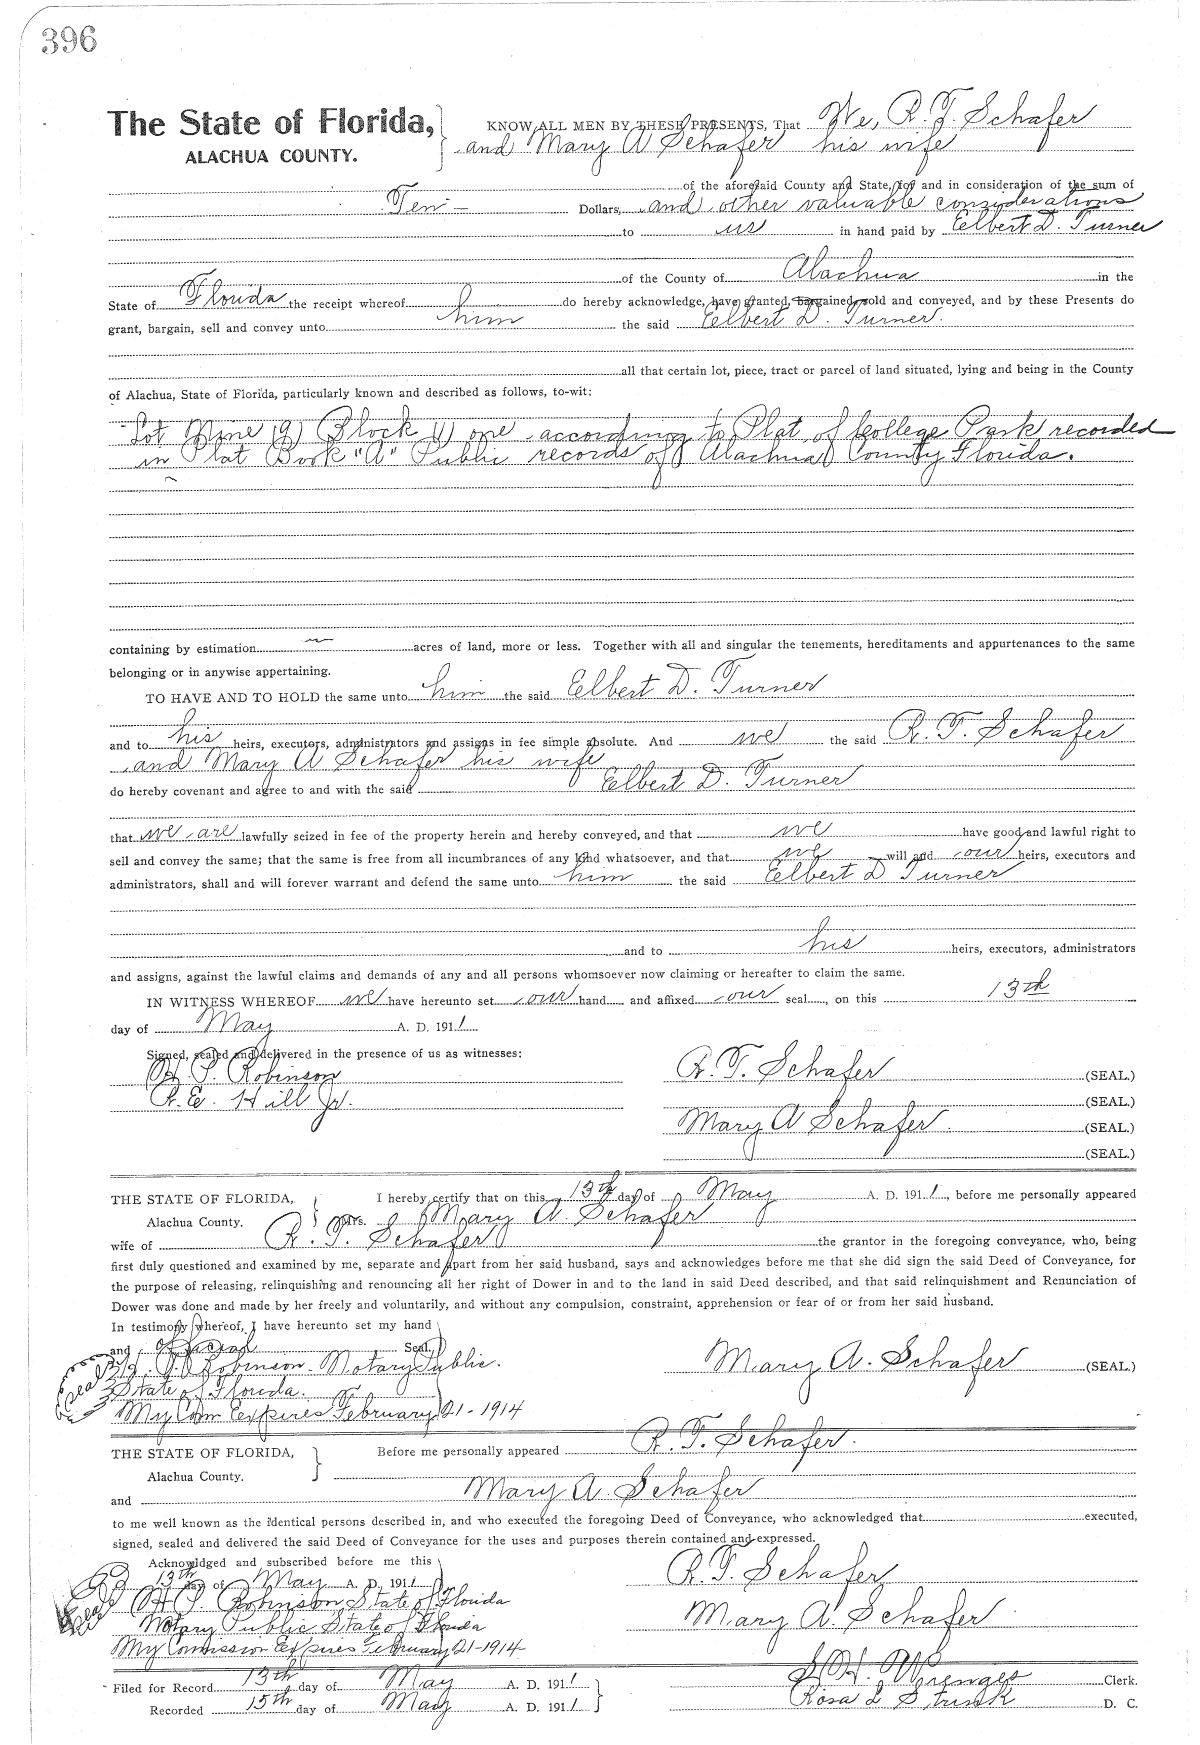 396
The State of Florida, KNOW ALL MEN BY THESE PRESENTS, That We, R. T. Schafer
ALACHUA COUNTY. and Mary A Schafer his wife
of the aforesaid County and State, for and in consideration of the sum of
Ten — Dollars, and other valuable considerations
to us in hand paid by Elbert D. Turner
of the County of Alachua in the
State of Florida the receipt whereof him do hereby acknowledge, have granted, bargained, sold and conveyed, and by these Presents do
grant, bargain, sell and convey unto him the said Elbert D. Turner.
all that certain lot, piece, tract or parcel of land situated, lying and being in the County
of Alachua, State of Florida, particularly known and described as follows, to-wit:
Lot Nine (9) Block (1) one according to Plat of College Park recorded
in Plat Book "A" Public records of Alachua County Florida.
containing by estimation acres of land, more or less. Together with all and singular the tenements, hereditaments and appurtenances to the same
belonging or in anywise appertaining.
TO HAVE AND TO HOLD the same unto him the said Elbert D. Turner
and to his heirs, executors, administrators and assigns in fee simple absolute. And we the said R. T. Schafer
and Mary A Schafer his wife
do hereby covenant and agree to and with the said Elbert D. Turner
that we are lawfully seized in fee of the property herein and hereby conveyed, and that we have good and lawful right to
sell and convey the same; that the same is free from all incumbrances of any kind whatsoever, and that we will and our heirs, executors and
administrators, shall and will forever warrant and defend the same unto him the said Elbert D Turner
and to his heirs, executors, administrators
and assigns, against the lawful claims and demands of any and all persons whomsoever now claiming or hereafter to claim the same.
IN WITNESS WHEREOF we have hereunto set our hand and affixed our seal, on this 13th
day of May A. D. 1911
Signed, sealed and delivered in the presence of us as witnesses:
H. P. Robinson R. T. Schafer (SEAL.)
R. E. Hill Jr. (SEAL.)
Mary A Schafer (SEAL.)
(SEAL.)
THE STATE OF FLORIDA, I hereby certify that on this 13th day of May A. D. 1911, before me personally appeared
Alachua County. Mrs. Mary A. Schafer
wife of R. T. Schafer the grantor in the foregoing conveyance, who, being
first duly questioned and examined by me, separate and apart from her said husband, says and acknowledges before me that she did sign the said Deed of Conveyance, for
the purpose of releasing, relinquishing and renouncing all her right of Dower in and to the land in said Deed described, and that said relinquishment and Renunciation of
Dower was done and made by her freely and voluntarily, and without any compulsion, constraint, apprehension or fear of or from her said husband.
In testimony whereof, I have hereunto set my hand
and official Seal.
Seal H. P. Robinson Notary Public. Mary A. Schafer (SEAL.)
State of Florida.
My Com Expires February 21-1914
THE STATE OF FLORIDA, Before me personally appeared R. T. Schafer.
Alachua County.
and Mary A. Schafer
to me well known as the identical persons described in, and who executed the foregoing Deed of Conveyance, who acknowledged that executed,
signed, sealed and delivered the said Deed of Conveyance for the uses and purposes therein contained and expressed.
Acknowledged and subscribed before me this R. T. Schafer
13th day of May A. D. 1911
Seal H. P. Robinson State of Florida Mary A. Schafer
Notary Public State of Florida
My Commission Expires February 21-1914
Filed for Record 13th day of May A. D. 1911 S. H. Wienges Clerk.
Recorded 15th day of May A. D. 1911 Rosa L Strunk D. C.